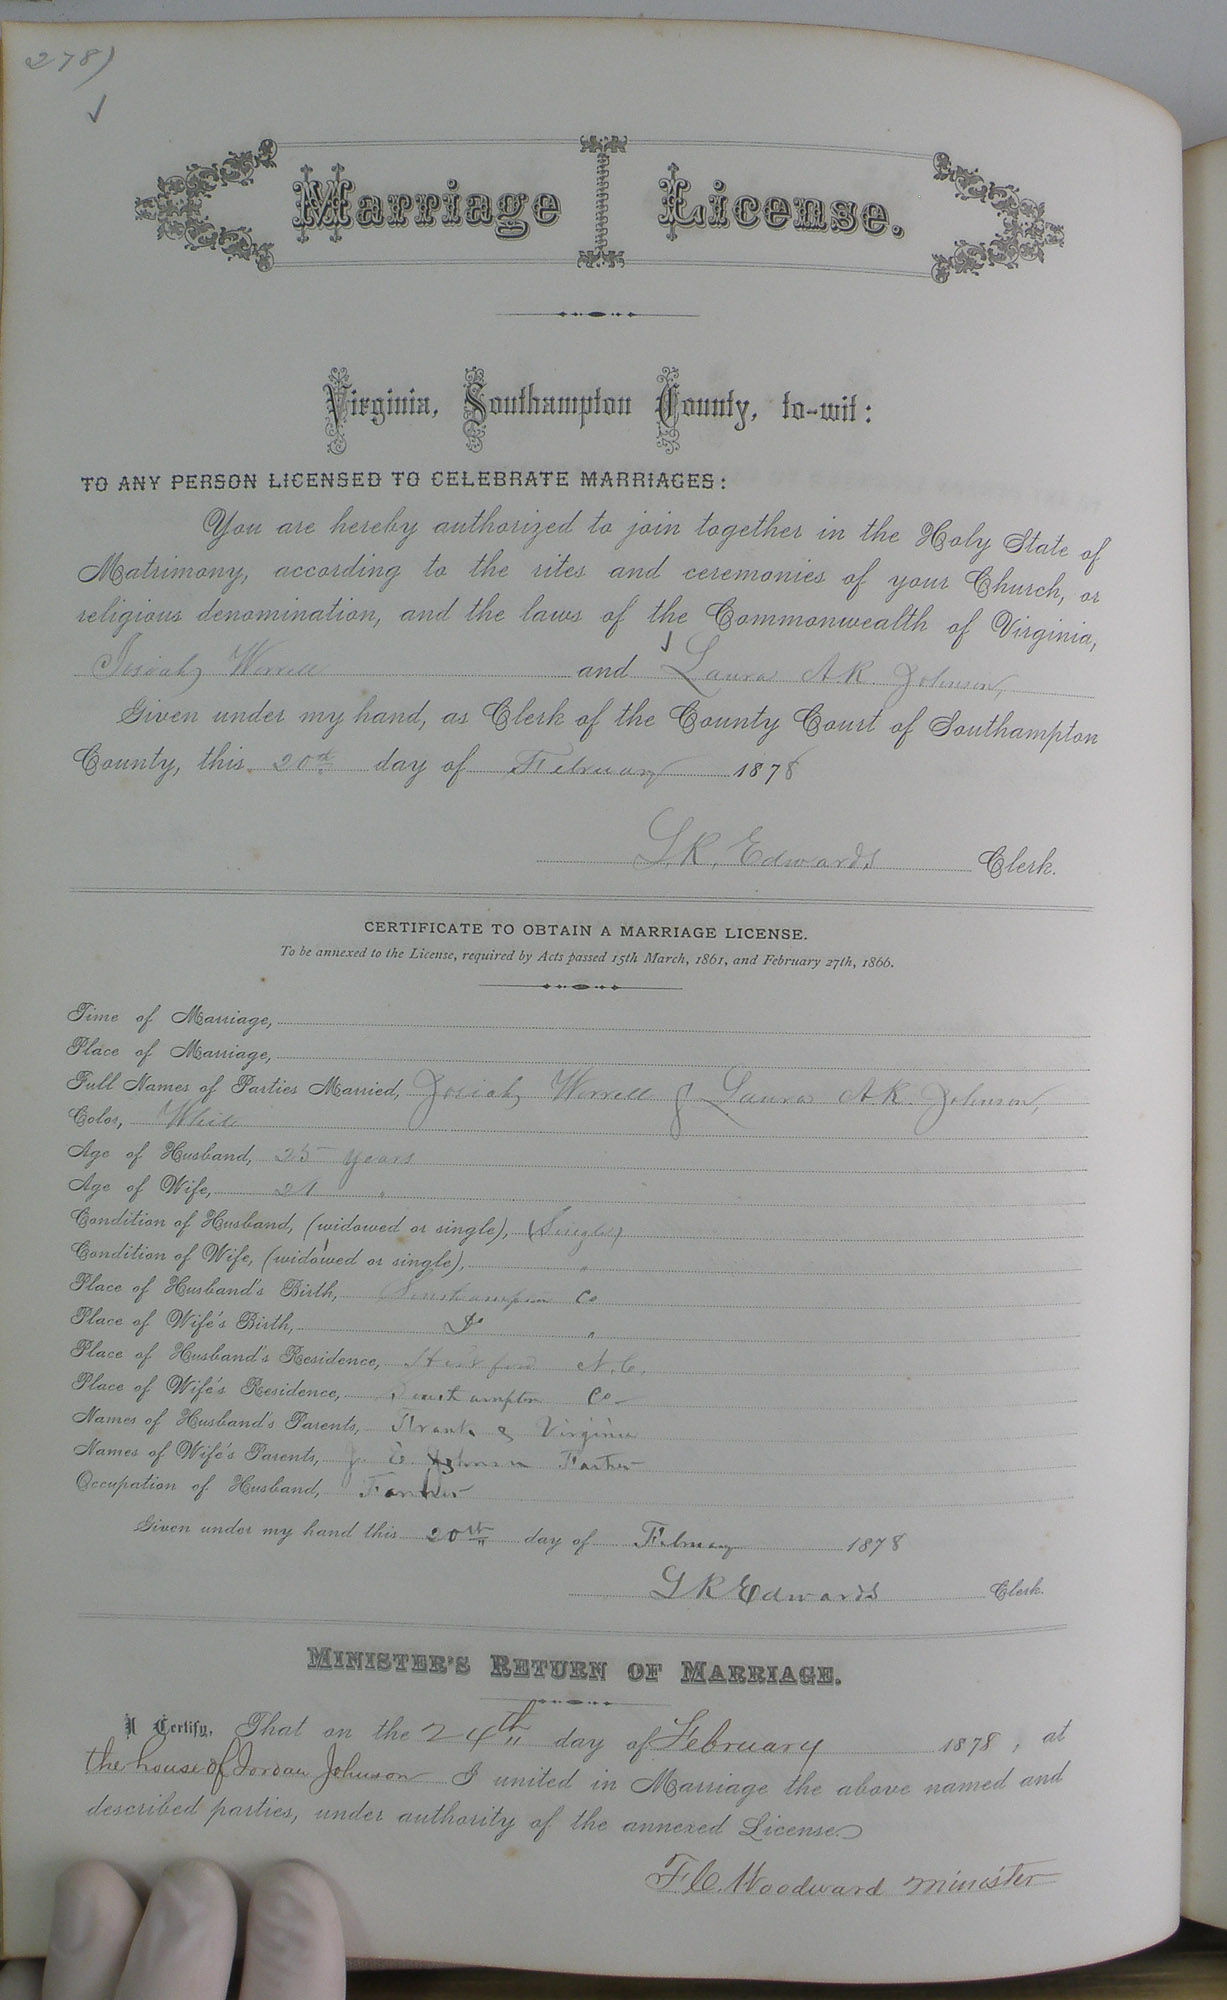 278)
Marriage License.
Virginia, Southampton County, to-wit:
TO ANY PERSON LICENSED TO CELEBRATE MARRIAGES:
You are hereby authorized to join together in the Holy State of
Matrimony, according to the rites and ceremonies of your Church, or
religious denomination, and the laws of the Commonwealth of Virginia,
Josiah Worrell and Laura A.R. Johnson,
Given under my hand, as Clerk of the County Court of Southampton
County, this 20th day of February 1878
L.R. Edwards Clerk.
CERTIFICATE TO OBTAIN A MARRIAGE LICENSE.
To be annexed to the License, required by Acts passed 15th March, 1861, and February 27th, 1866.
Time of Marriage,
Place of Marriage,
Full Names of Parties Married, Josiah Worrell & Laura A.R. Johnson,
Color, White
Age of Husband, 25 years
Age of Wife, 21 "
Condition of Husband, (widowed or single), (Single)
Condition of Wife, (widowed or single), "
Place of Husband's Birth, Southampton Co
Place of Wife's Birth, Do "
Place of Husband's Residence, Hertford N.C.
Place of Wife's Residence, Southampton Co
Names of Husband's Parents, Frank & Virginia
Names of Wife's Parents, J. E. Johnson Father
Occupation of Husband, Farmer
Given under my hand this 20th day of February 1878
L R Edwards Clerk.
MINISTER'S RETURN OF MARRIAGE.
I Certify, That on the 24th day of February 1878, at
the house of Jordan Johnson I united in Marriage the above named and
described parties, under authority of the annexed License.
F.C. Woodward minister